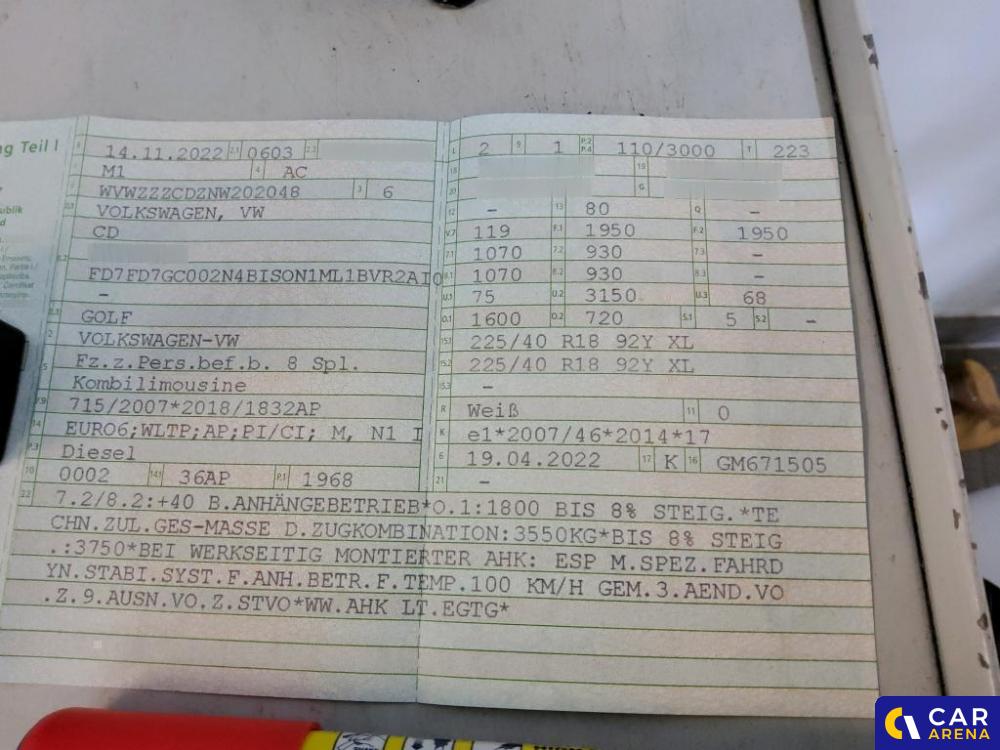 ng Teil I
14.11.2022 2.1 0603 2.2
M1 4 AC
WVWZZZCDZNW202048 3 6
VOLKSWAGEN, VW
CD
FD7FD7GC002N4BISON1ML1BVR2AI0
–
GOLF
VOLKSWAGEN-VW
Fz.z.Pers.bef.b. 8 Spl.
Kombilimousine
715/2007*2018/1832AP
14 EURO6;WLTP;AP;PI/CI; M, N1 I
P.3 Diesel
10 0002 14.1 36AP P.1 1968
L 2 9 1 P.2 P.4 110/3000 T 223
18 19
20 G
12 – 13 80 Q –
V.7 119 F.1 1950 F.2 1950
7.1 1070 7.2 930 7.3 –
8.1 1070 8.2 930 8.3 –
U.1 75 U.2 3150 U.3 68
O.1 1600 O.2 720 S.1 5 S.2 –
15.1 225/40 R18 92Y XL
15.2 225/40 R18 92Y XL
15.3 –
R Weiß 11 0
K e1*2007/46*2014*17
6 19.04.2022 17 K 16 GM671505
21 –
22 7.2/8.2:+40 B.ANHÄNGEBETRIEB*O.1:1800 BIS 8% STEIG.*TE
CHN.ZUL.GES-MASSE D.ZUGKOMBINATION:3550KG*BIS 8% STEIG
.:3750*BEI WERKSEITIG MONTIERTER AHK: ESP M.SPEZ.FAHRD
YN.STABI.SYST.F.ANH.BETR.F.TEMP.100 KM/H GEM.3.AEND.VO
.Z.9.AUSN.VO.Z.STVO*WW.AHK LT.EGTG*
CAR
ARENA